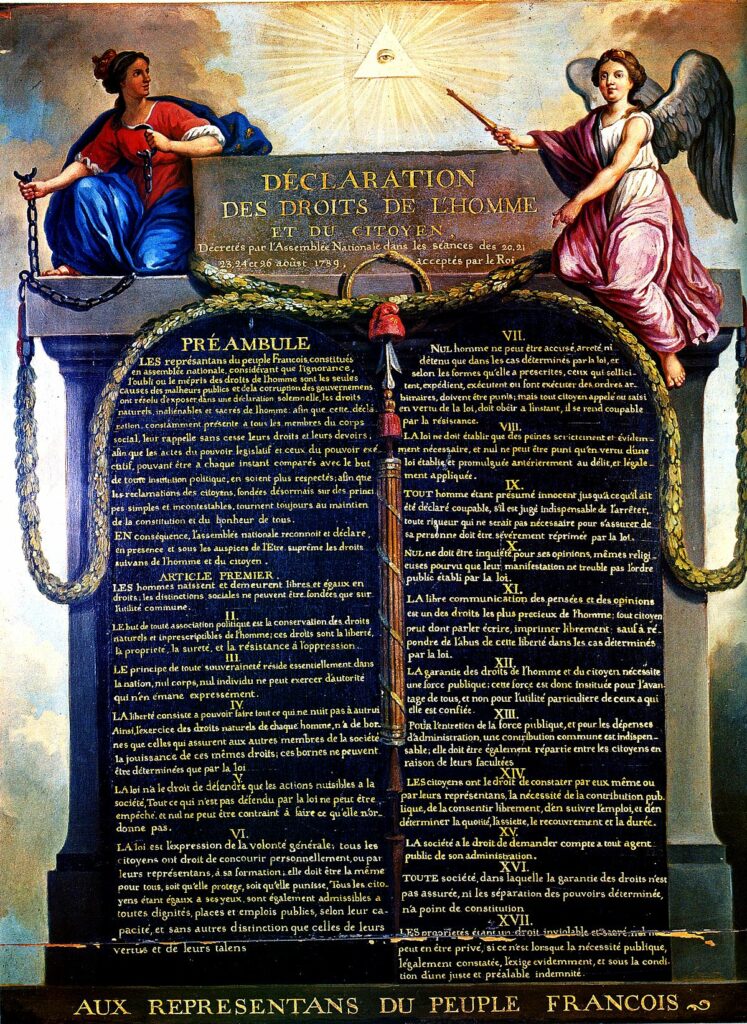 DÉCLARATION
DES DROITS DE L'HOMME
ET DU CITOYEN,
Décretés par l'Assemblée Nationale dans les séances des 20, 21
23, 24 et 26 aoûst 1789, acceptés par le Roi
PRÉAMBULE
LES représantans du peuple Francois, constitués
en assemblée nationale, considérant que l'ignorance,
l'oubli ou le mépris des droits de l'homme sont les seules
causes des malheurs publics et de la corruption des gouvernemens
ont résolu d'exposer dans une déclaration solemnelle, les droits
naturels, inaliénables et sacrés de l'homme; afin que cette décla
ration, constamment présente a tous les membres du corps
social, leur rappelle sans cesse leurs droits et leurs devoirs;
afin que les actes du pouvoir législatif et ceux du pouvoir exé
cutif, pouvant être a chaque instant comparés avec le but
de toute institution politique, en soient plus respectés; afin que
les reclamations des citoyens, fondées désormais sur des princi
pes simples et incontestables, tournent toujours au maintien
de la constitution et du bonheur de tous.
EN conséquence, l'assemblée nationale reconnoit et déclare,
en presence et sous les auspices de l'Etre suprême les droits
suivans de l'homme et du citoyen.
ARTICLE PREMIER.
LES hommes naissent et demeurent libres et égaux en
droits; les distinctions sociales ne peuvent être fondées que sur
l'utilité commune.
II.
LE but de toute association politique est la conservation des droits
naturels et inprescriptibles de l'homme; ces droits sont la liberté,
la propriété, la sureté, et la résistance à l'oppression.
III.
LE principe de toute souveraineté réside essentiellement dans
la nation, nul corps, nul individu ne peut exercer d'autorité
qui n'en émane expressément.
IV.
LA liberté consiste a pouvoir faire tout ce qui ne nuit pas à autrui
Ainsi, l'exercice des droits naturels de chaque homme, n'a de bor-
nes que celles qui assurent aux autres membres de la société
la jouissance de ces mêmes droits; ces bornes ne peuvent
être déterminées que par la loi
V.
LA loi n'a le droit de défendre que les actions nuisibles a la
société, Tout ce qui n'est pas défendu par la loi ne peut être
empêché, et nul ne peut être contraint à faire ce qu'elle n'or-
donne pas.
VI.
LA loi est l'expression de la volonté générale; tous les
citoyens ont droit de concourir personnellement, ou par
leurs représentans, à sa formation; elle doit être la même
pour tous, soit qu'elle protege, soit qu'elle punisse, Tous les cito
yens étant égaux a ses yeux, sont également admissibles a
toutes dignités, places et emplois publics, selon leur ca
pacité, et sans autres distinction que celles de leurs
vertus et de leurs talens
VII.
NUL homme ne peut être accusé, arreté, ni
détenu que dans les cas déterminés par la loi, et
selon les formes qu'elle a prescrites, ceux qui sollici-
tent, expédient, exécutent ou font exécuter des ordres ar-
bitraires, doivent être punis; mais tout citoyen appelé ou saisi
en vertu de la loi, doit obéir a l'instant, il se rend coupable
par la résistance.
VIII.
LA loi ne doit établir que des peines strictement et évidem-
ment nécessaire, et nul ne peut être puni qu'en vertu d'une
loi établie, et promulguée antérierement au délit, et légale-
ment appliquée.
IX.
TOUT homme étant présumé innocent jusqu'a ce qu'il ait
été déclaré coupable, s'il est jugé indispensable de l'arrêter,
toute rigueur qui ne serait pas nécessaire pour s'assurer de
sa personne doit être sévérement réprimée par la loi.
X.
NUL ne doit être inquiété pour ses opinions, mêmes religi-
euses pourvu que leur manifestation ne trouble pas l'ordre
public établi par la loi.
XI.
LA libre communication des pensées et des opinions
est un des droits les plus precieux de l'homme; tout citoyen
peut dont parler écrire, imprimer librement; sauf à ré-
pondre de l'abus de cette liberté dans les cas déterminés
par la loi.
XII.
LA garantie des droits de l'homme et du citoyen nécessite
une force publique; cette force est donc instituée pour l'avan-
tage de tous, et non pour l'utilité particuliere de ceux a qui
elle est confiée.
XIII.
POUR l'entretien de la force publique, et pour les dépenses
d'administration, une contribution commune est indispen-
sable; elle doit être également répartie entre les citoyens en
raison de leurs facultées
XIV.
LES citoyens ont le droit de constater par eux même ou
par leurs représentans, la nécessité de la contribution pub
lique, de la consentir librement, d'en suivre l'emploi, et d'en
déterminer la quotité, l'assiette, le recouvrement et la durée.
XV.
LA société a le droit de demander compte a tout agent
public de son administration.
XVI.
TOUTE société, dans laquelle la garantie des droits n'est
pas assurée, ni les séparation des pouvoirs déterminée,
n'a point de constitution
XVII.
LES proprietés étant un droit inviolable et sacré, nul ne
peut en être privé, si ce n'est lorsque la nécessité publique,
légalement constatée, l'exige evidemment, et sous la condi
tion d'une juste et préalable indemnité.
AUX REPRESENTANS DU PEUPLE FRANCOIS